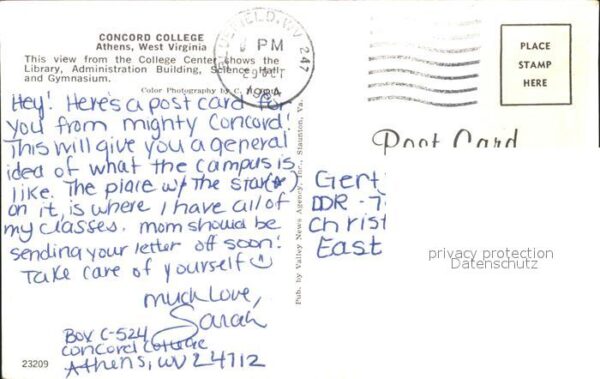 CONCORD COLLEGE
Athens, West Virginia
This view from the College Center shows the
Library, Administration Building, Science Hall
and Gymnasium.
Color Photography by C.
Hey! Here's a post card for
you from mighty Concord!
This will give you a general
idea of what the campus is
like. The place w/ the star(☆)
on it, is where I have all of
my classes. Mom should be
sending your letter off soon!
Take care of yourself ☺
Much Love,
Sarah
Box C-524
Concord College
Athens, WV 24712
23209
Pub. by Valley News Agency, Inc., Staunton, Va.
BLUEFIELD, WV 247
PM
29 OCT
1984
PLACE
STAMP
HERE
Post Card
Gert
DDR - 7
Christ
East
privacy protection
Datenschutz